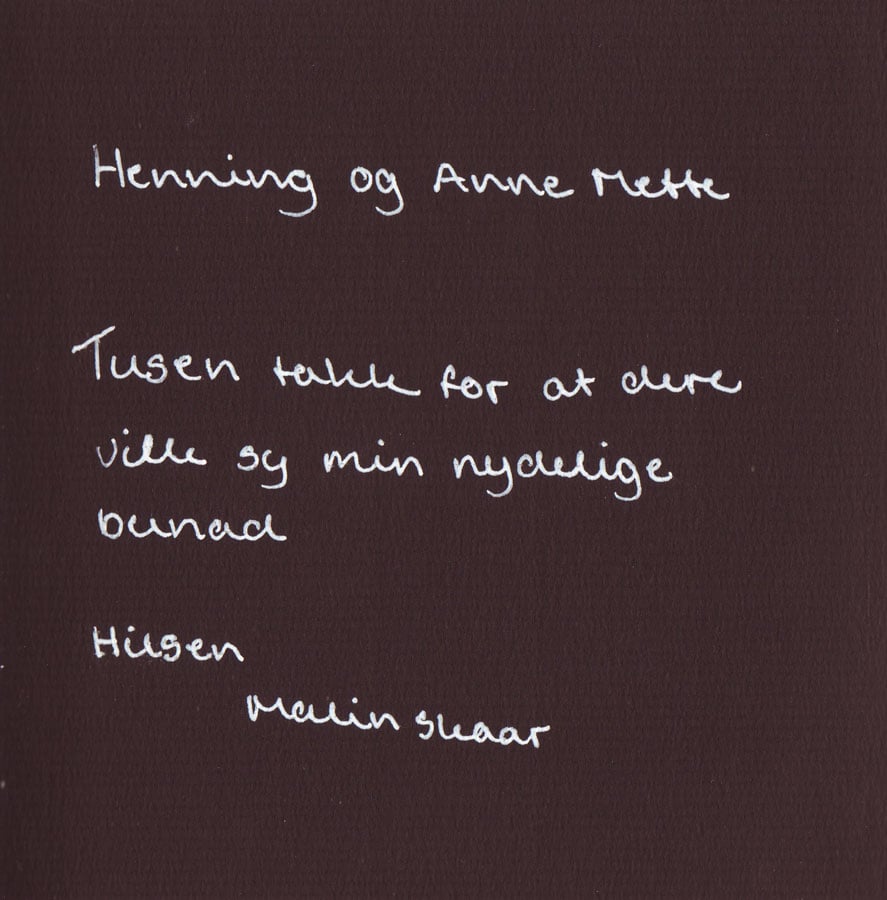 Henning og Anne Mette
Tusen takk for at dere
ville sy min nydelige
bunad
Hilsen
Malin Skaar